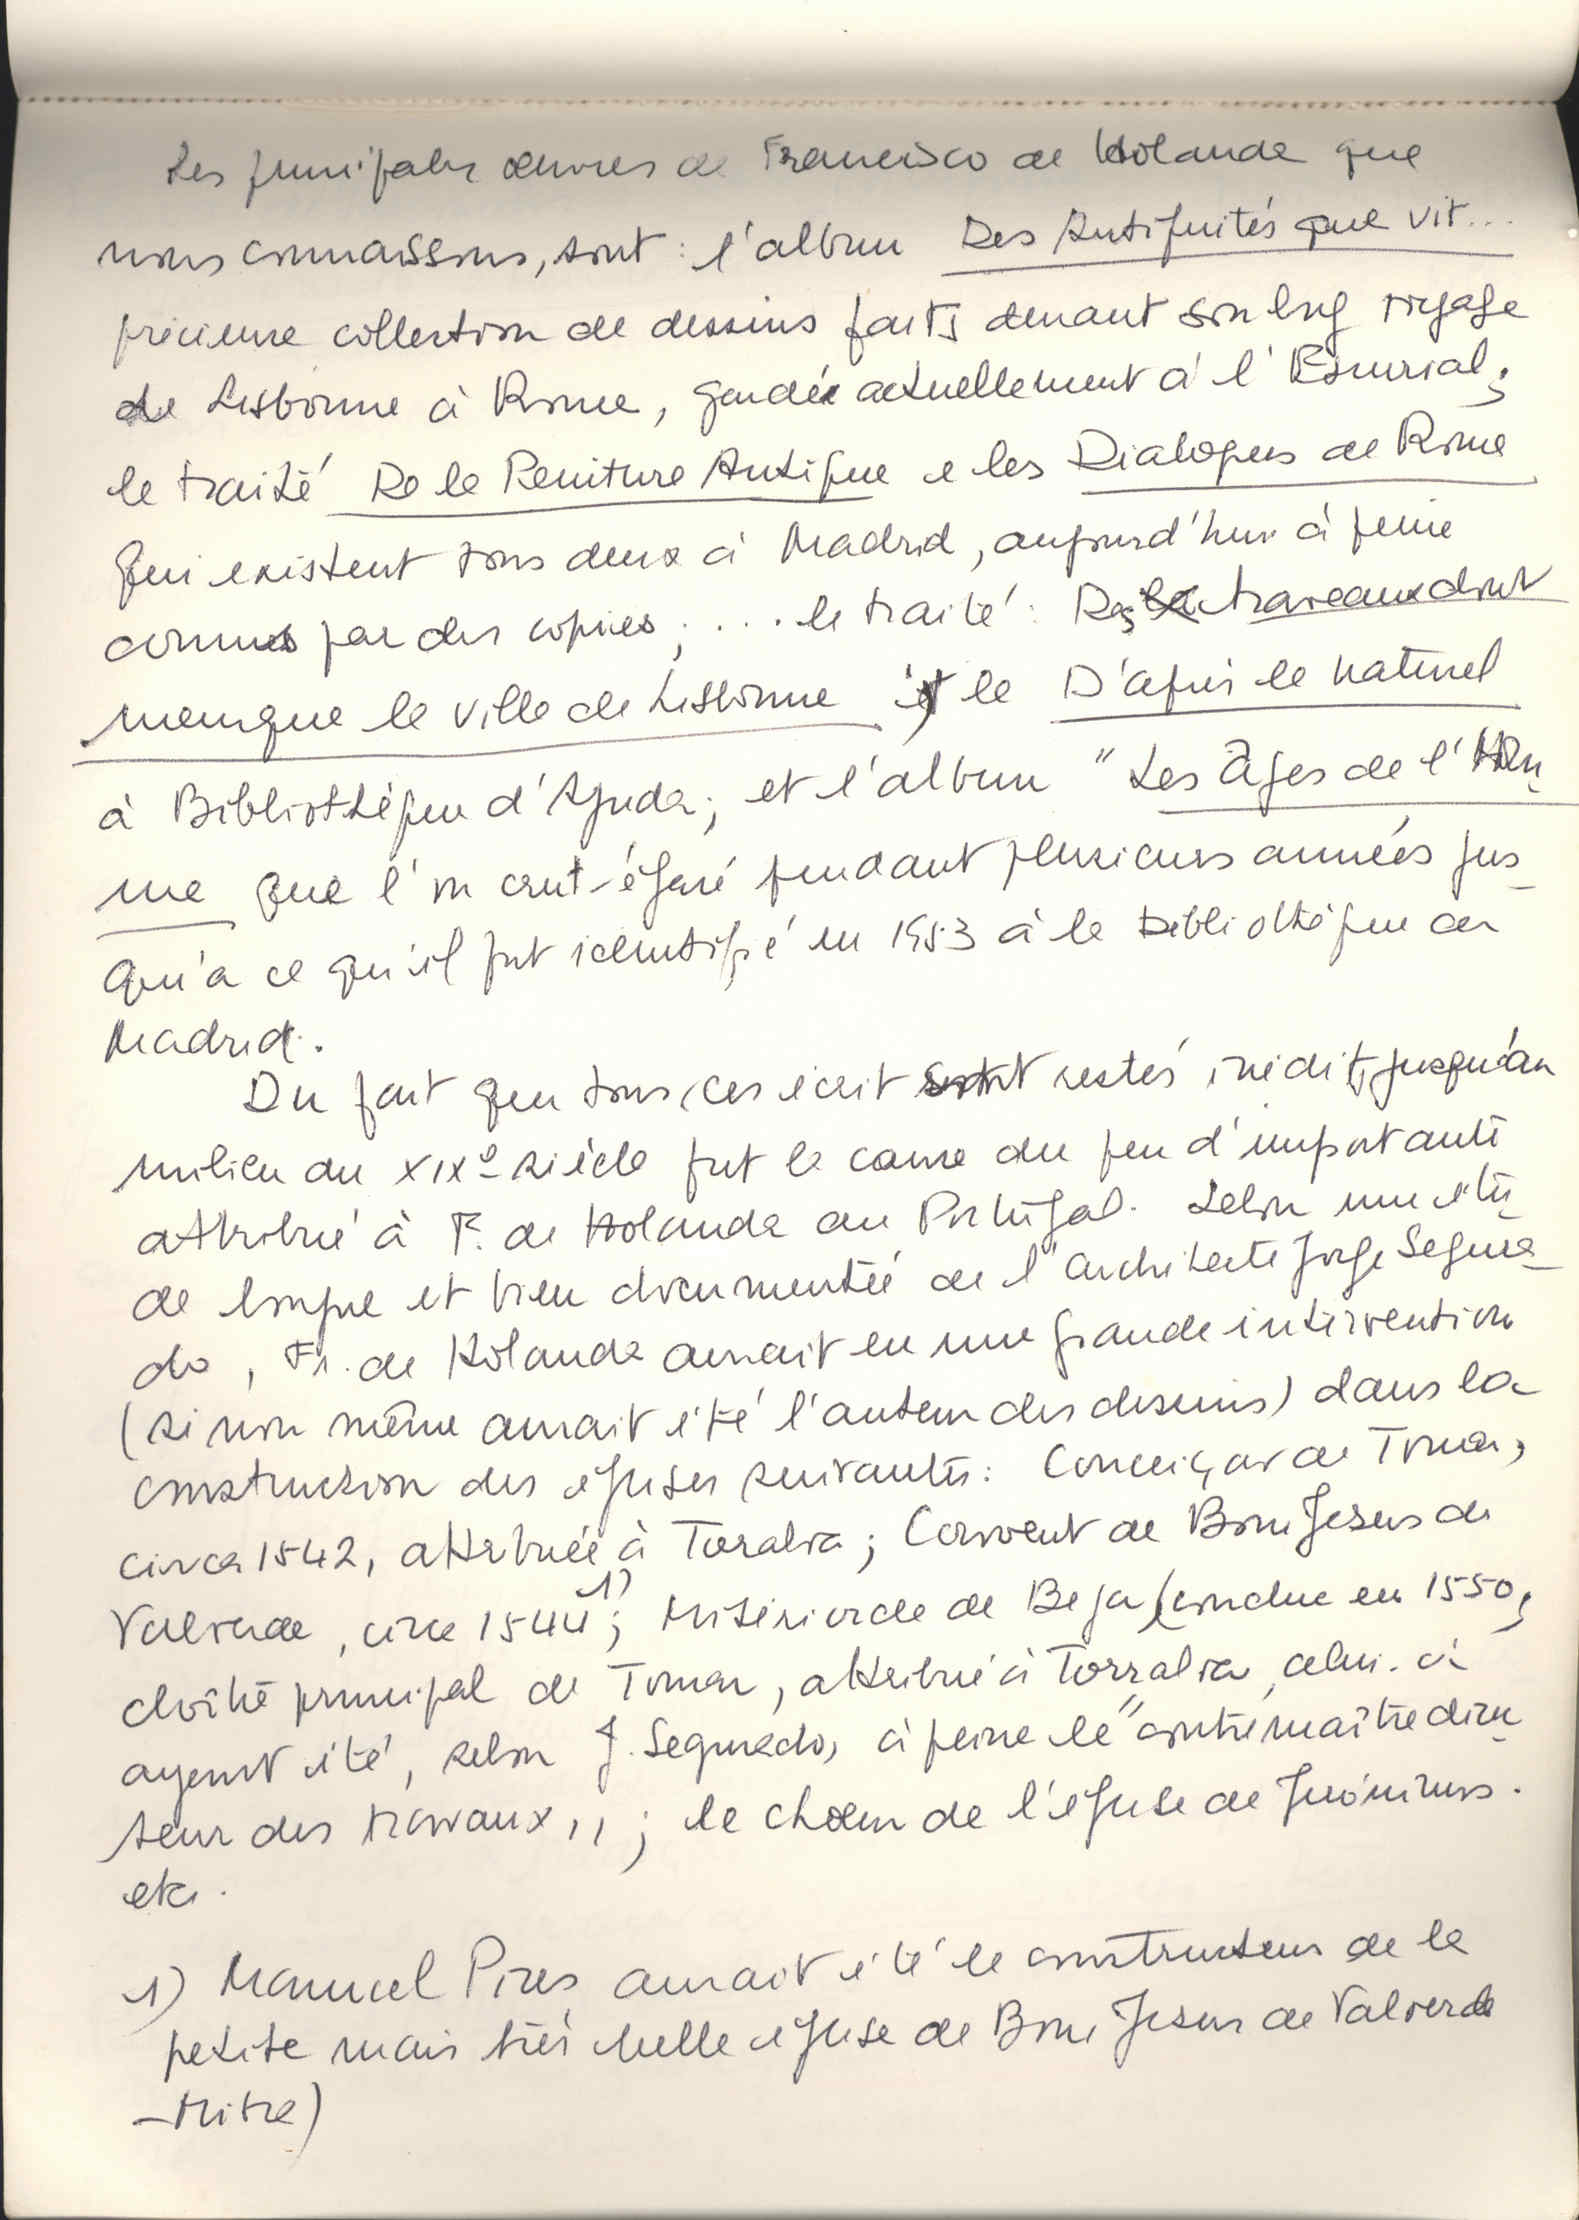 Les principales œuvres de Francisco de Holanda que
nous connaissons, sont : l'album Des Antiquités que vit...
précieuse collection de dessins faits durant son long voyage
de Lisbonne à Rome, gardée actuellement à l'Escurial;
le traité De la Peinture Antique e les Dialogues de Rome
qui existent tous deux à Madrid, aujourd'hui à peine
connus par des copies; ... le traité : Des travaux dont
manque la ville de Lisbonne et le D'après le naturel
à Bibliothèque d'Ajuda; et l'album "Les Âges de l'Hom
me que l'on crut égaré pendant plusieurs années jus-
qu'a ce qu'il fut identifié en 1953 à la bibliothèque de
Madrid.
Du fait que tous ces écrit sont restés inedits jusqu'au
milieu du XIXº siècle fut la cause du peu d'importante
attribué à F. de Holanda au Portugal. Selon une étu
de longue et bien documentée de l'architecte Jorge Segura-
do, Fr. de Holanda aurait eu une grande intervention
(si non même aurait été l'auteur des dessins) dans la
construction des églises suivantes : Conceiçao de Tomar,
circa 1542, attribuée à Toralva; Convent de Bom Jesus de
Valverde, circa 1544 1); Miséricorde de Beja (conclue en 1550,
cloître principal de Tomar, attribué à Torralva, celui-ci
ayant été, selon J. Segurado, à peine le "contremaître direc
teur des travaux,,; le choeur de l'église de Jerónimos.
etc.
1) Manuel Pires aurait été le constructeur de la
petite mais très belle église de Bom Jesus de Valverde
-Mitra)